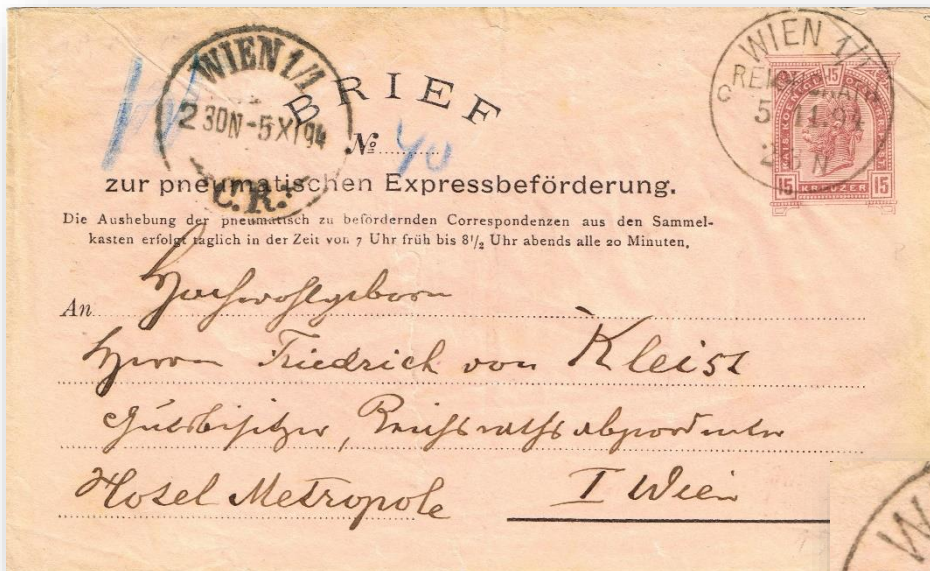 WIEN 1/1
2 30N - 5 XI 94
C.R.
WIEN 1/1
5 11.94
N
15
15 KREUZER 15
BRIEF
No 40
zur pneumatischen Expressbeförderung.
Die Aushebung der pneumatisch zu befördernden Correspondenzen aus den Sammel-
kasten erfolgt täglich in der Zeit von 7 Uhr früh bis 8½ Uhr abends alle 20 Minuten.
An Hochwohlgeborn
Herrn Friedrich von Kleist
Gutsbesitzer, Reichsrathsabgeordneter
Hotel Metropole I Wien
W